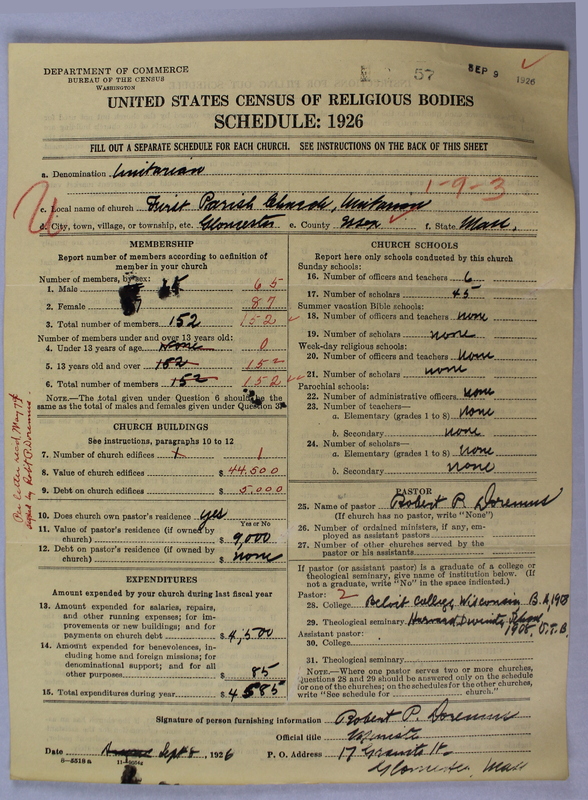 DEPARTMENT OF COMMERCE
BUREAU OF THE CENSUS
WASHINGTON
57
SEP 9 1926
UNITED STATES CENSUS OF RELIGIOUS BODIES
SCHEDULE: 1926
FILL OUT A SEPARATE SCHEDULE FOR EACH CHURCH. SEE INSTRUCTIONS ON THE BACK OF THIS SHEET
a. Denomination Unitarian
1-9-3
c. Local name of church First Parish Church, Unitarian
d. City, town, village, or township, etc. Gloucester e. County Essex f. State Mass.
MEMBERSHIP
Report number of members according to definition of
member in your church
Number of members, by sex:
1. Male 65
2. Female 87
3. Total number of members 152 152
Number of members under and over 13 years old:
4. Under 13 years of age None 0
5. 13 years old and over 152 152
6. Total number of members 152 152
NOTE.—The total given under Question 6 should be the
same as the total of males and females given under Question 3.
Per letter recd. May 7
signed by Robt. P. Doremus
CHURCH BUILDINGS
See instructions, paragraphs 10 to 12
7. Number of church edifices 1 1
8. Value of church edifices $ 44,500
9. Debt on church edifices $ 5,000
10. Does church own pastor's residence? yes
Yes or No
11. Value of pastor's residence (if owned by
church) $ 9,000
12. Debt on pastor's residence (if owned by
church) $ none
EXPENDITURES
Amount expended by your church during last fiscal year
13. Amount expended for salaries, repairs,
and other running expenses; for im-
provements or new buildings; and for
payments on church debt $ 4,500
14. Amount expended for benevolences, in-
cluding home and foreign missions; for
denominational support; and for all
other purposes $ 85
15. Total expenditures during year $ 4585
CHURCH SCHOOLS
Report here only schools conducted by this church
Sunday schools:
16. Number of officers and teachers 6
17. Number of scholars 45
Summer vacation Bible schools:
18. Number of officers and teachers none
19. Number of scholars none
Week-day religious schools:
20. Number of officers and teachers none
21. Number of scholars none
Parochial schools:
22. Number of administrative officers none
23. Number of teachers—
a. Elementary (grades 1 to 8) none
b. Secondary none
24. Number of scholars—
a. Elementary (grades 1 to 8) none
b. Secondary none
PASTOR
25. Name of pastor Robert P. Doremus
(If church has no pastor, write "None")
26. Number of ordained ministers, if any, em-
ployed as assistant pastors
27. Number of other churches served by the
pastor or his assistants
If pastor (or assistant pastor) is a graduate of a college or
theological seminary, give name of institution below. (If
not a graduate, write "No" in the space indicated.)
Pastor: 2
28. College Beloit College, Wisconsin B.A, 1905
29. Theological seminary Harvard Divinity School
1908, S.T.B.
Assistant pastor:
30. College
31. Theological seminary
NOTE.—Where one pastor serves two or more churches,
Questions 28 and 29 should be answered only on the schedule
for one of the churches; on the schedules for the other churches,
write "See schedule for church."
Signature of person furnishing information Robert P. Doremus
Official title Minister
Date Sept 8, 1926 P. O. Address 17 Granite St.
Gloucester, Mass
8-5518 a